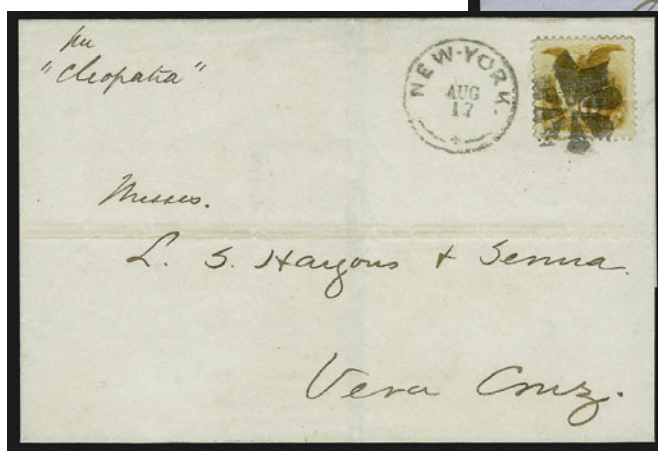 per
"Cleopatra"
NEW-YORK.
AUG
17
Messrs.
L. S. Hargous + Senna.
Vera Cruz.